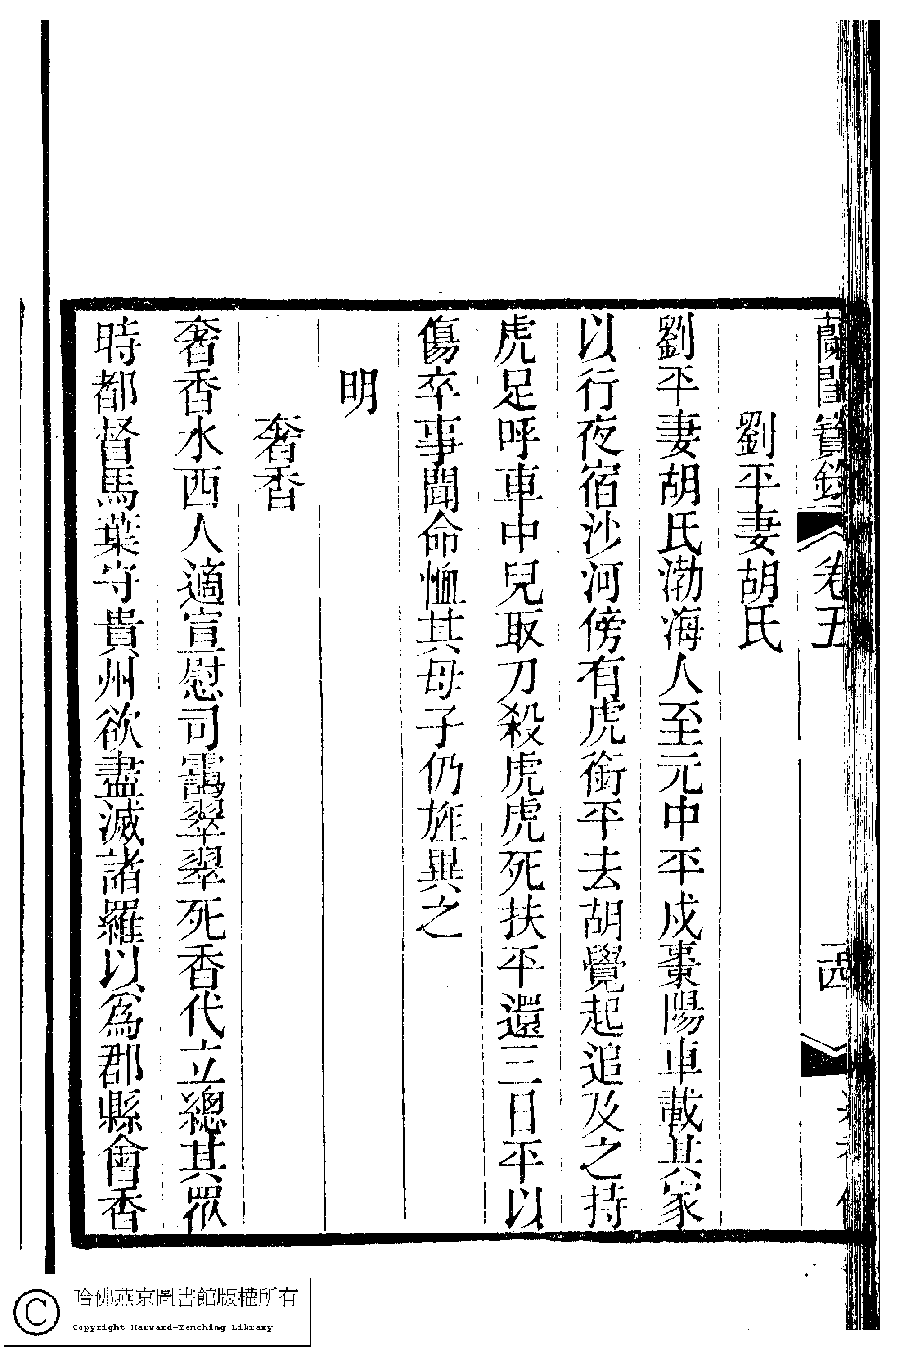 蘭閨寶錄 卷五
劉平妻胡氏
劉平妻胡氏渤海人至元中平戍棗陽車載其家
以行夜宿沙河傍有虎銜平去胡覺起追及之持
虎足呼車中兒取刀殺虎虎死扶平還三日平以
傷卒事聞命恤其母子仍旌異之
明
奢香
奢香水西人適宣慰司靄翠翠死香代立總其眾
時都督馬葉守貴州欲盡滅諸羅以為郡縣會香
哈佛燕京圖書館版權所有
Copyright Harvard-Yenching Library